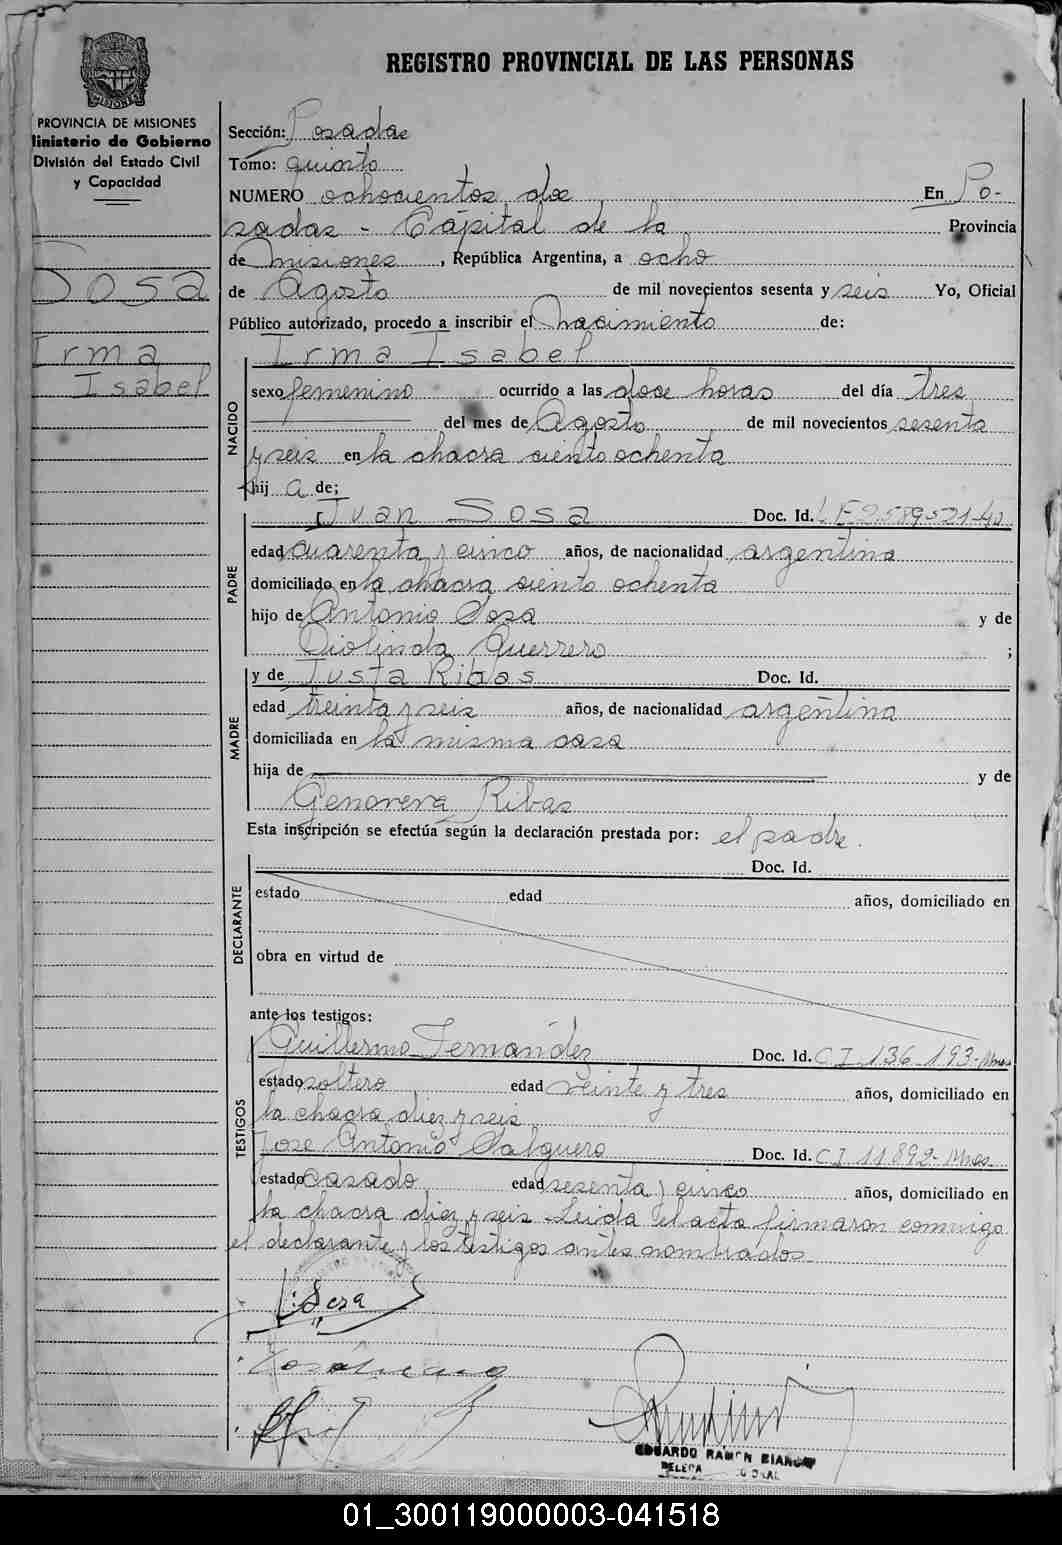 REGISTRO PROVINCIAL DE LAS PERSONAS
MISIONES
PROVINCIA DE MISIONES
Ministerio de Gobierno
División del Estado Civil
y Capacidad
Sosa
Irma
Isabel
Sección: Posadas
Tomo: quinto
NUMERO ochocientos dos En Po-
sadas - Capital de la Provincia
de Misiones, República Argentina, a ocho
de Agosto de mil novecientos sesenta y seis Yo, Oficial
Público autorizado, procedo a inscribir el nacimiento de:
Irma Isabel
NACIDO
sexo femenino ocurrido a las doce horas del día tres
del mes de Agosto de mil novecientos sesenta
y seis en la chacra ciento ochenta
hij a de;
PADRE
Juan Sosa Doc. Id. L E 2.589521-40
edad cuarenta y cinco años, de nacionalidad argentina
domiciliado en la chacra ciento ochenta
hijo de Antonio Sosa y de
Diolinda Guerrero ;
MADRE
y de Justa Ribas Doc. Id.
edad treinta y seis años, de nacionalidad argentina
domiciliada en la misma casa
hija de y de
Genoveva Ribas
Esta inscripción se efectúa según la declaración prestada por: el padre.
DECLARANTE
Doc. Id.
estado edad años, domiciliado en
obra en virtud de
ante los testigos:
TESTIGOS
Guillermo Fernandez Doc. Id. C I 136.193-Mnes
estado soltero edad veinte y tres años, domiciliado en
la chacra diez y seis
Jose Antonio Salguero Doc. Id. C I 11892-Mnes
estado casado edad sesenta y cinco años, domiciliado en
la chacra diez y seis Leida el acta firmaron conmigo
el declarante y los testigos antes nombrados
J. Sosa
EDUARDO RAMON BIANCHI
01_300119000003-041518